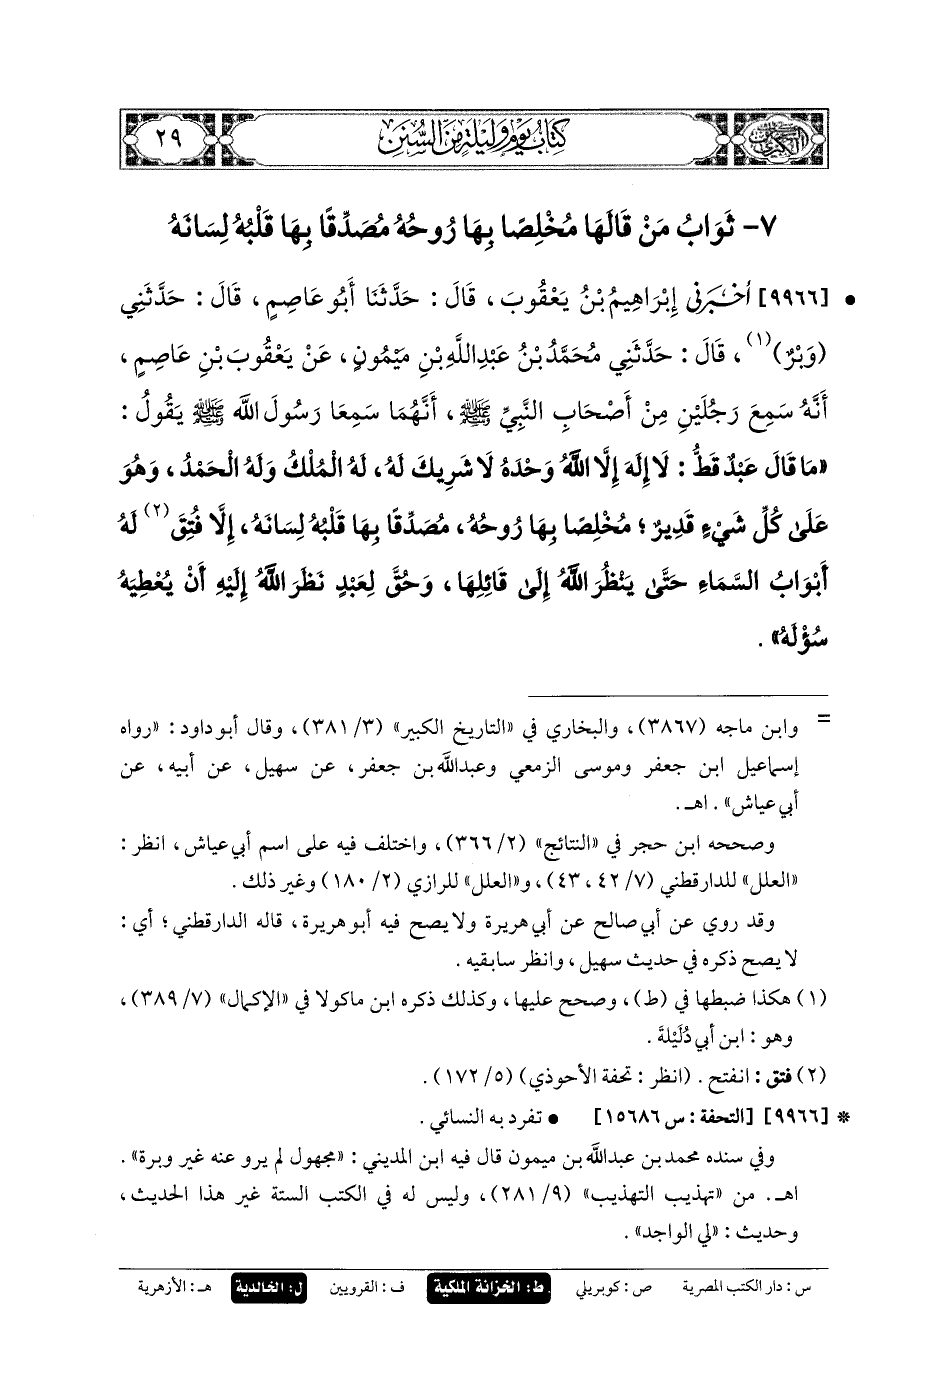 السنن الكبرى
كتاب يوم وليلة من السنن
٢٩
٧- ثَوَابُ مَنْ قَالَهَا مُخْلِصًا بِهَا رُوحُهُ مُصَدِّقًا بِهَا قَلْبُهُ لِسَانَهُ
• [٩٩٦٦] أَخْبَرَنِي إِبْرَاهِيمُ بْنُ يَعْقُوبَ، قَالَ: حَدَّثَنَا أَبُو عَاصِمٍ، قَالَ: حَدَّثَنِي
(وَبْرٌ)(١)، قَالَ: حَدَّثَنِي مُحَمَّدُ بْنُ عَبْدِاللَّهِ بْنِ مَيْمُونٍ، عَنْ يَعْقُوبَ بْنِ عَاصِمٍ،
أَنَّهُ سَمِعَ رَجُلَيْنِ مِنْ أَصْحَابِ النَّبِيِّ ﷺ، أَنَّهُمَا سَمِعَا رَسُولَ اللَّهِ ﷺ يَقُولُ:
«مَا قَالَ عَبْدٌ قَطُّ: لَا إِلَهَ إِلَّا اللَّهُ وَحْدَهُ لَا شَرِيكَ لَهُ، لَهُ الْمُلْكُ وَلَهُ الْحَمْدُ، وَهُوَ
عَلَى كُلِّ شَيْءٍ قَدِيرٌ؛ مُخْلِصًا بِهَا رُوحُهُ، مُصَدِّقًا بِهَا قَلْبُهُ لِسَانَهُ، إِلَّا فُتِقَ(٢) لَهُ
أَبْوَابُ السَّمَاءِ حَتَّى يَنْظُرَ اللَّهُ إِلَى قَائِلِهَا، وَحُقَّ لِعَبْدٍ نَظَرَ اللَّهُ إِلَيْهِ أَنْ يُعْطِيَهُ
سُؤْلَهُ».
= وابن ماجه (٣٨٦٧)، والبخاري في «التاريخ الكبير» (٣/ ٣٨١)، وقال أبو داود: «رواه
إسماعيل ابن جعفر وموسى الزمعي وعبدالله بن جعفر، عن سهيل، عن أبيه، عن
أبي عياش». اهـ.
وصححه ابن حجر في «النتائج» (٢/ ٣٦٦)، واختلف فيه على اسم أبي عياش، انظر:
«العلل» للدارقطني (٧/ ٤٢، ٤٣)، و«العلل» للرازي (٢/ ١٨٠) وغير ذلك.
وقد روي عن أبي صالح عن أبي هريرة ولا يصح فيه أبو هريرة، قاله الدارقطني؛ أي:
لا يصح ذكره في حديث سهيل، وانظر سابقيه.
(١) هكذا ضبطها في (ط)، وصحح عليها، وكذلك ذكره ابن ماكولا في «الإكمال» (٧/ ٣٨٩)،
وهو: ابن أبي دُلَيْلة.
(٢) فتق: انفتح. (انظر: تحفة الأحوذي) (٥/ ١٧٢).
* [٩٩٦٦] [التحفة: س ١٥٦٨٦] • تفرد به النسائي.
وفي سنده محمد بن عبدالله بن ميمون قال فيه ابن المديني: «مجهول لم يرو عنه غير وبرة».
اهـ. من «تهذيب التهذيب» (٩/ ٢٨١)، وليس له في الكتب الستة غير هذا الحديث،
وحديث: «لي الواجد».
س: دار الكتب المصرية ص: كوبريلي ط: الخزانة الملكية ف: القرويين ل: الخالدية هـ: الأزهرية